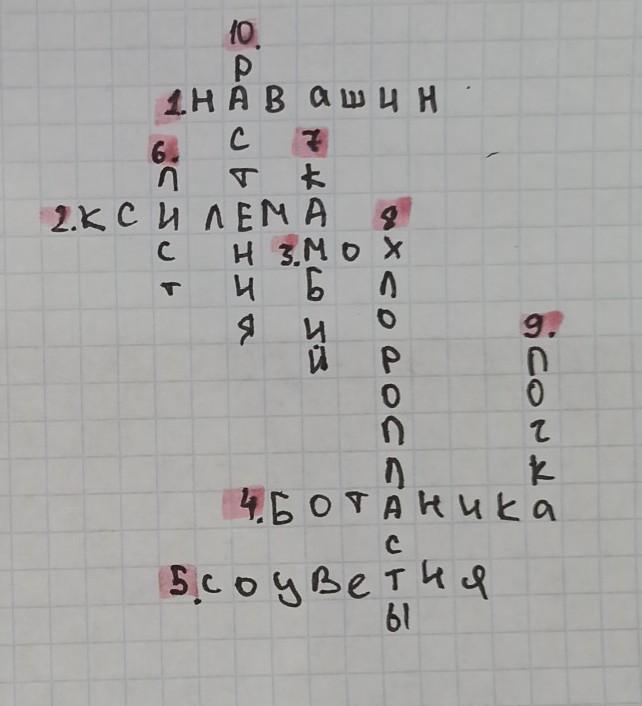 1. НАВашин
2. КСИЛЕМА
3. МОХ
4. БОТАНИКа
5. СОУВеТИЯ
6. ЛИСТ
7 КАМБИЙ
8 ХЛОРОПЛАСТЫ
9. ПОЧКа
10. РАСТЕНИЯ